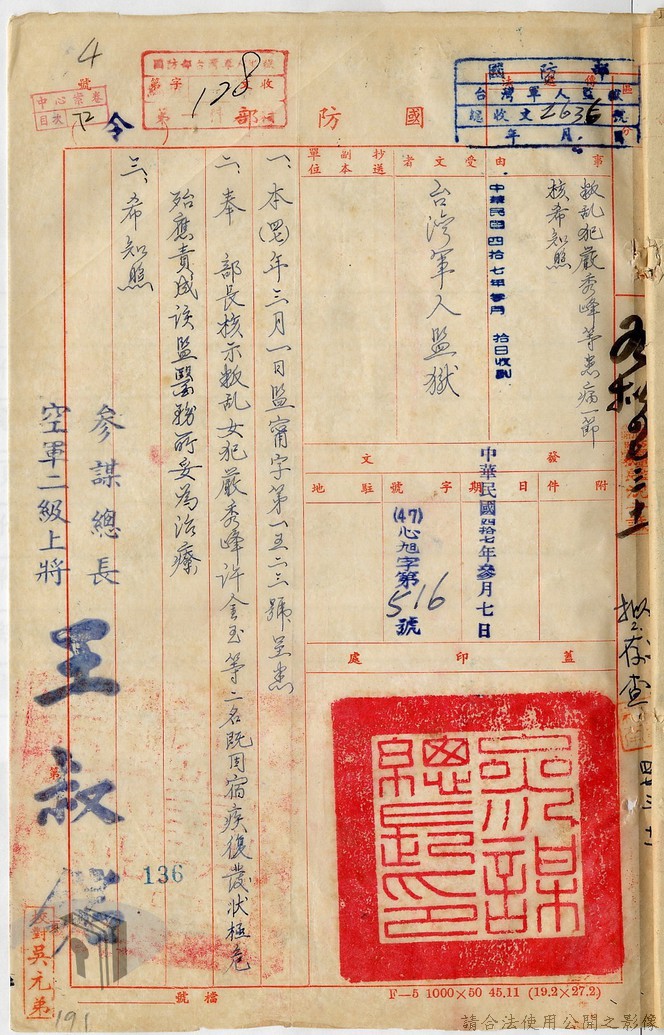 國防部
令
事由
叛乱犯嚴秀峰等患病一節
核希知照
中華民國四拾七年參月拾日收到
受文者
台灣軍人監獄
抄送副本單位
附件
發文
日期
中華民國四拾七年參月七日
字號
(47)心旭字第516號
駐地
蓋印處
參謀總長印
一、本(四七)年三月一日監甯字第一五二三號呈悉
二、奉 部長核示叛乱女犯嚴秀峰許金玉等二名既因宿疾復發狀極危
殆應責成該監醫務所妥為治療
三、希知照
參謀總長
空軍二級上將
王叔銘
校對吳元弟
國防部
台灣軍人監獄
總收文2636號
年 月 日
收文
字第128號
中心案卷
目次
號
4
72
擬存查
四七、三、十一
136
191
檔號
F—5 1000×50 45.11 (19.2×27.2)
請合法使用公開之影像